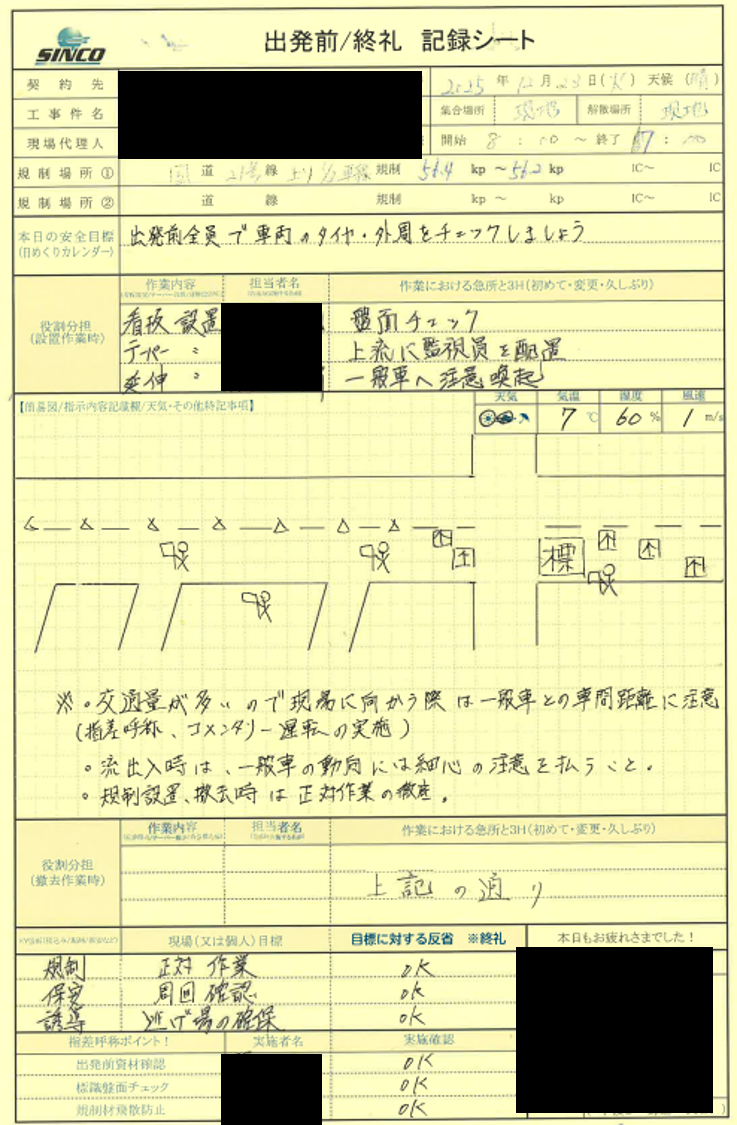 SINCO
出発前/終礼 記録シート
契約先
2025年12月23日(火) 天候(晴)
工事件名
集合場所 現地 解散場所 現地
現場代理人
開始 8:00 ～ 終了 17:00
規制場所① 国道 21号線 上り 規制 56.4 kp ～ 56.2 kp IC～ IC
規制場所② 道 線 規制 kp ～ kp IC～ IC
本日の安全目標
(日めくりカレンダー)
出発前全員で車両のタイヤ・外周をチェックしましょう
役割分担
(設置作業時)
作業内容 担当者名 作業における急所と3H(初めて・変更・久しぶり)
看板 設置 盤面チェック
テーパー 〃 上流に監視員を配置
延伸 〃 一般車へ注意喚起
【簡易図/指示内容記載欄/天気・その他特記事項】
天気 気温 湿度 風速
7℃ 60% 1m/s
標
※・交通量が多いので現場に向かう際は一般車との車間距離に注意
(指差呼称、コメンタリー運転の実施)
・流出入時は、一般車の動向には細心の注意を払うこと。
・規制設置、撤去時は正対作業の徹底。
役割分担
(撤去作業時)
作業内容 担当者名 作業における急所と3H(初めて・変更・久しぶり)
上記の通り
現場(又は個人)目標 目標に対する反省 ※終礼 本日もお疲れさまでした!
規制 正対作業 OK
保安 周囲確認 OK
誘導 逃げ場の確保 OK
指差呼称ポイント! 実施者名 実施確認
出発前資材確認 OK
標識盤面チェック OK
規制材飛散防止 OK